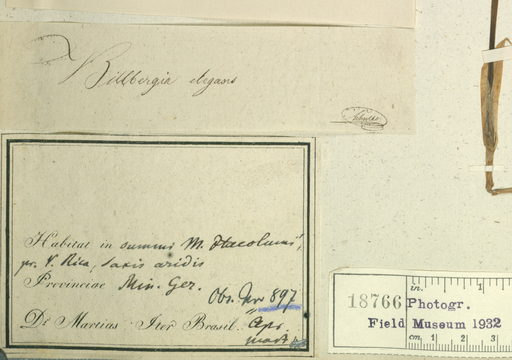 Billbergia elegans
Schultes
Habitat in summis M. Itacolumi,
pr. V. Rica, saxis aridis
Provinciae Min. Ger.
Obs. Nr 897
Dr Martius Iter Brasil.
Apr.
18766 Photogr.
Field Museum 1932
in. 1
cm 1 2 3